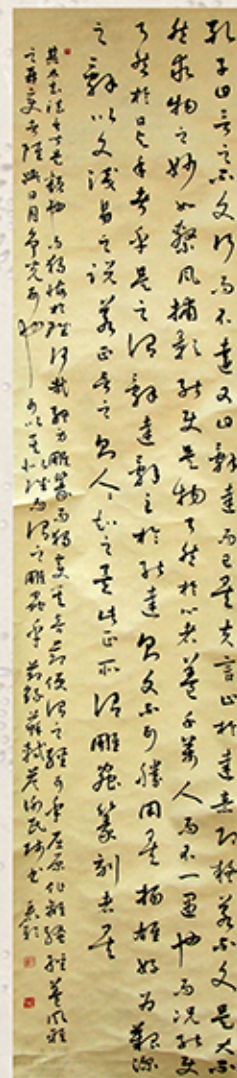 孔子曰言之不文行而不遠又曰辭達而已矣夫言止於達意即疑若不文是大不
然求物之妙如繫風捕影能使是物了然於心者蓋千萬人而不一遇也而況能使
了然於口與手者乎是之謂辭達辭至於能達則文不可勝用矣揚雄好為艱深
之辭以文淺易之說若正言之則人人知之矣此正所謂雕蟲篆刻者
其太玄法言皆是類也而獨悔於賦何哉終身雕篆而獨變其音節便謂之經可乎屈原作離騷經蓋風雅
之再變者雖與日月爭光可也可以其似賦而謂之雕蟲乎節錄蘇軾答謝民師書